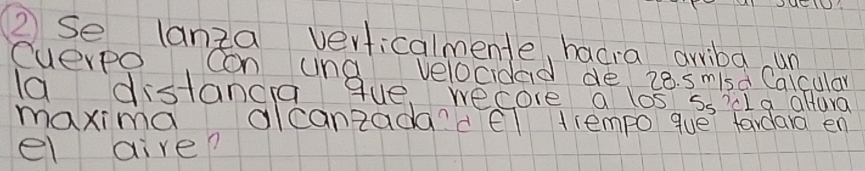 ② Se lanza verticalmente hacia arriba un
Cuerpo con una velocidad de 28.5 m/s ¿ Calcular
la distancia que recore a los 5s ? ¿ La altura
maxima alcanzada? ¿ El tiempo que tardara en
el aire?